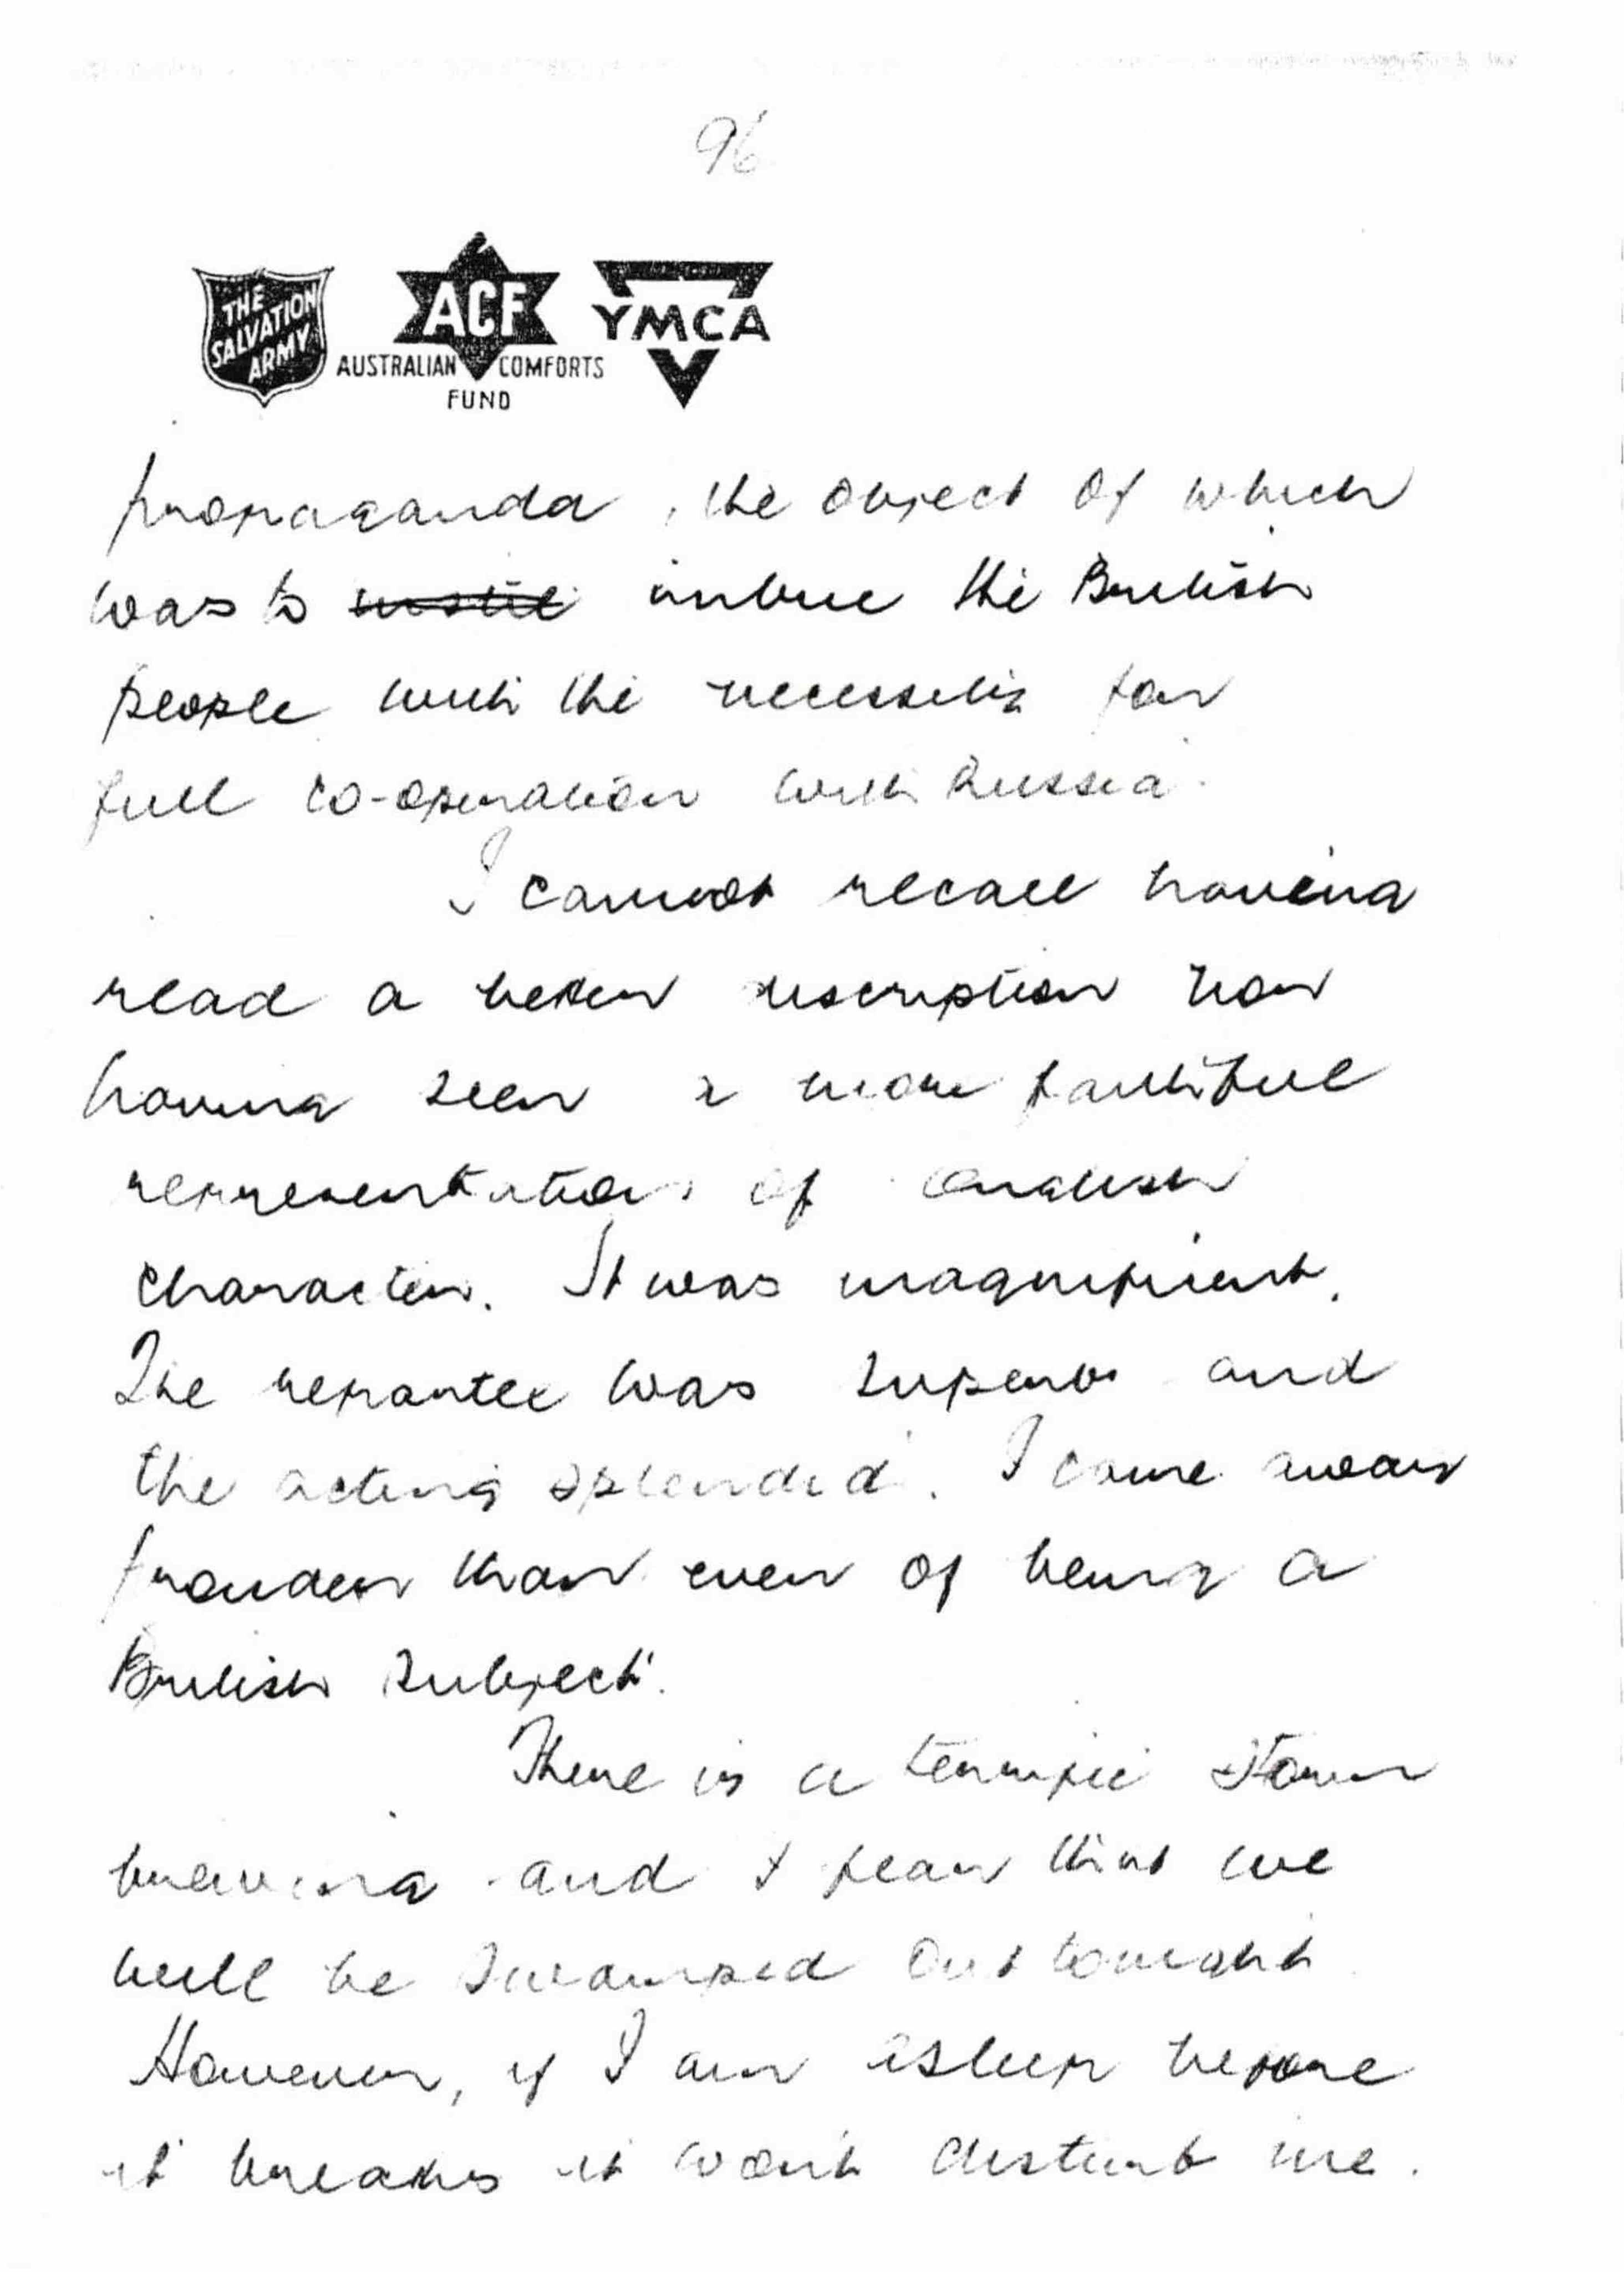 96
THE
SALVATION
ARMY
ACF
AUSTRALIAN COMFORTS
FUND
YMCA
propaganda, the object of which
was to instil imbue the British
people with the necessity for
full co-operation with Russia.
I cannot recall having
read a better description nor
having seen a more faithful
representation of English
character. It was magnificent.
The repartee was superb and
the acting splendid. I came away
prouder than ever of being a
British subject.
There is a terrific storm
brewing and I fear that we
will be swamped out tonight.
However, if I am asleep before
it breaks it won't disturb me.